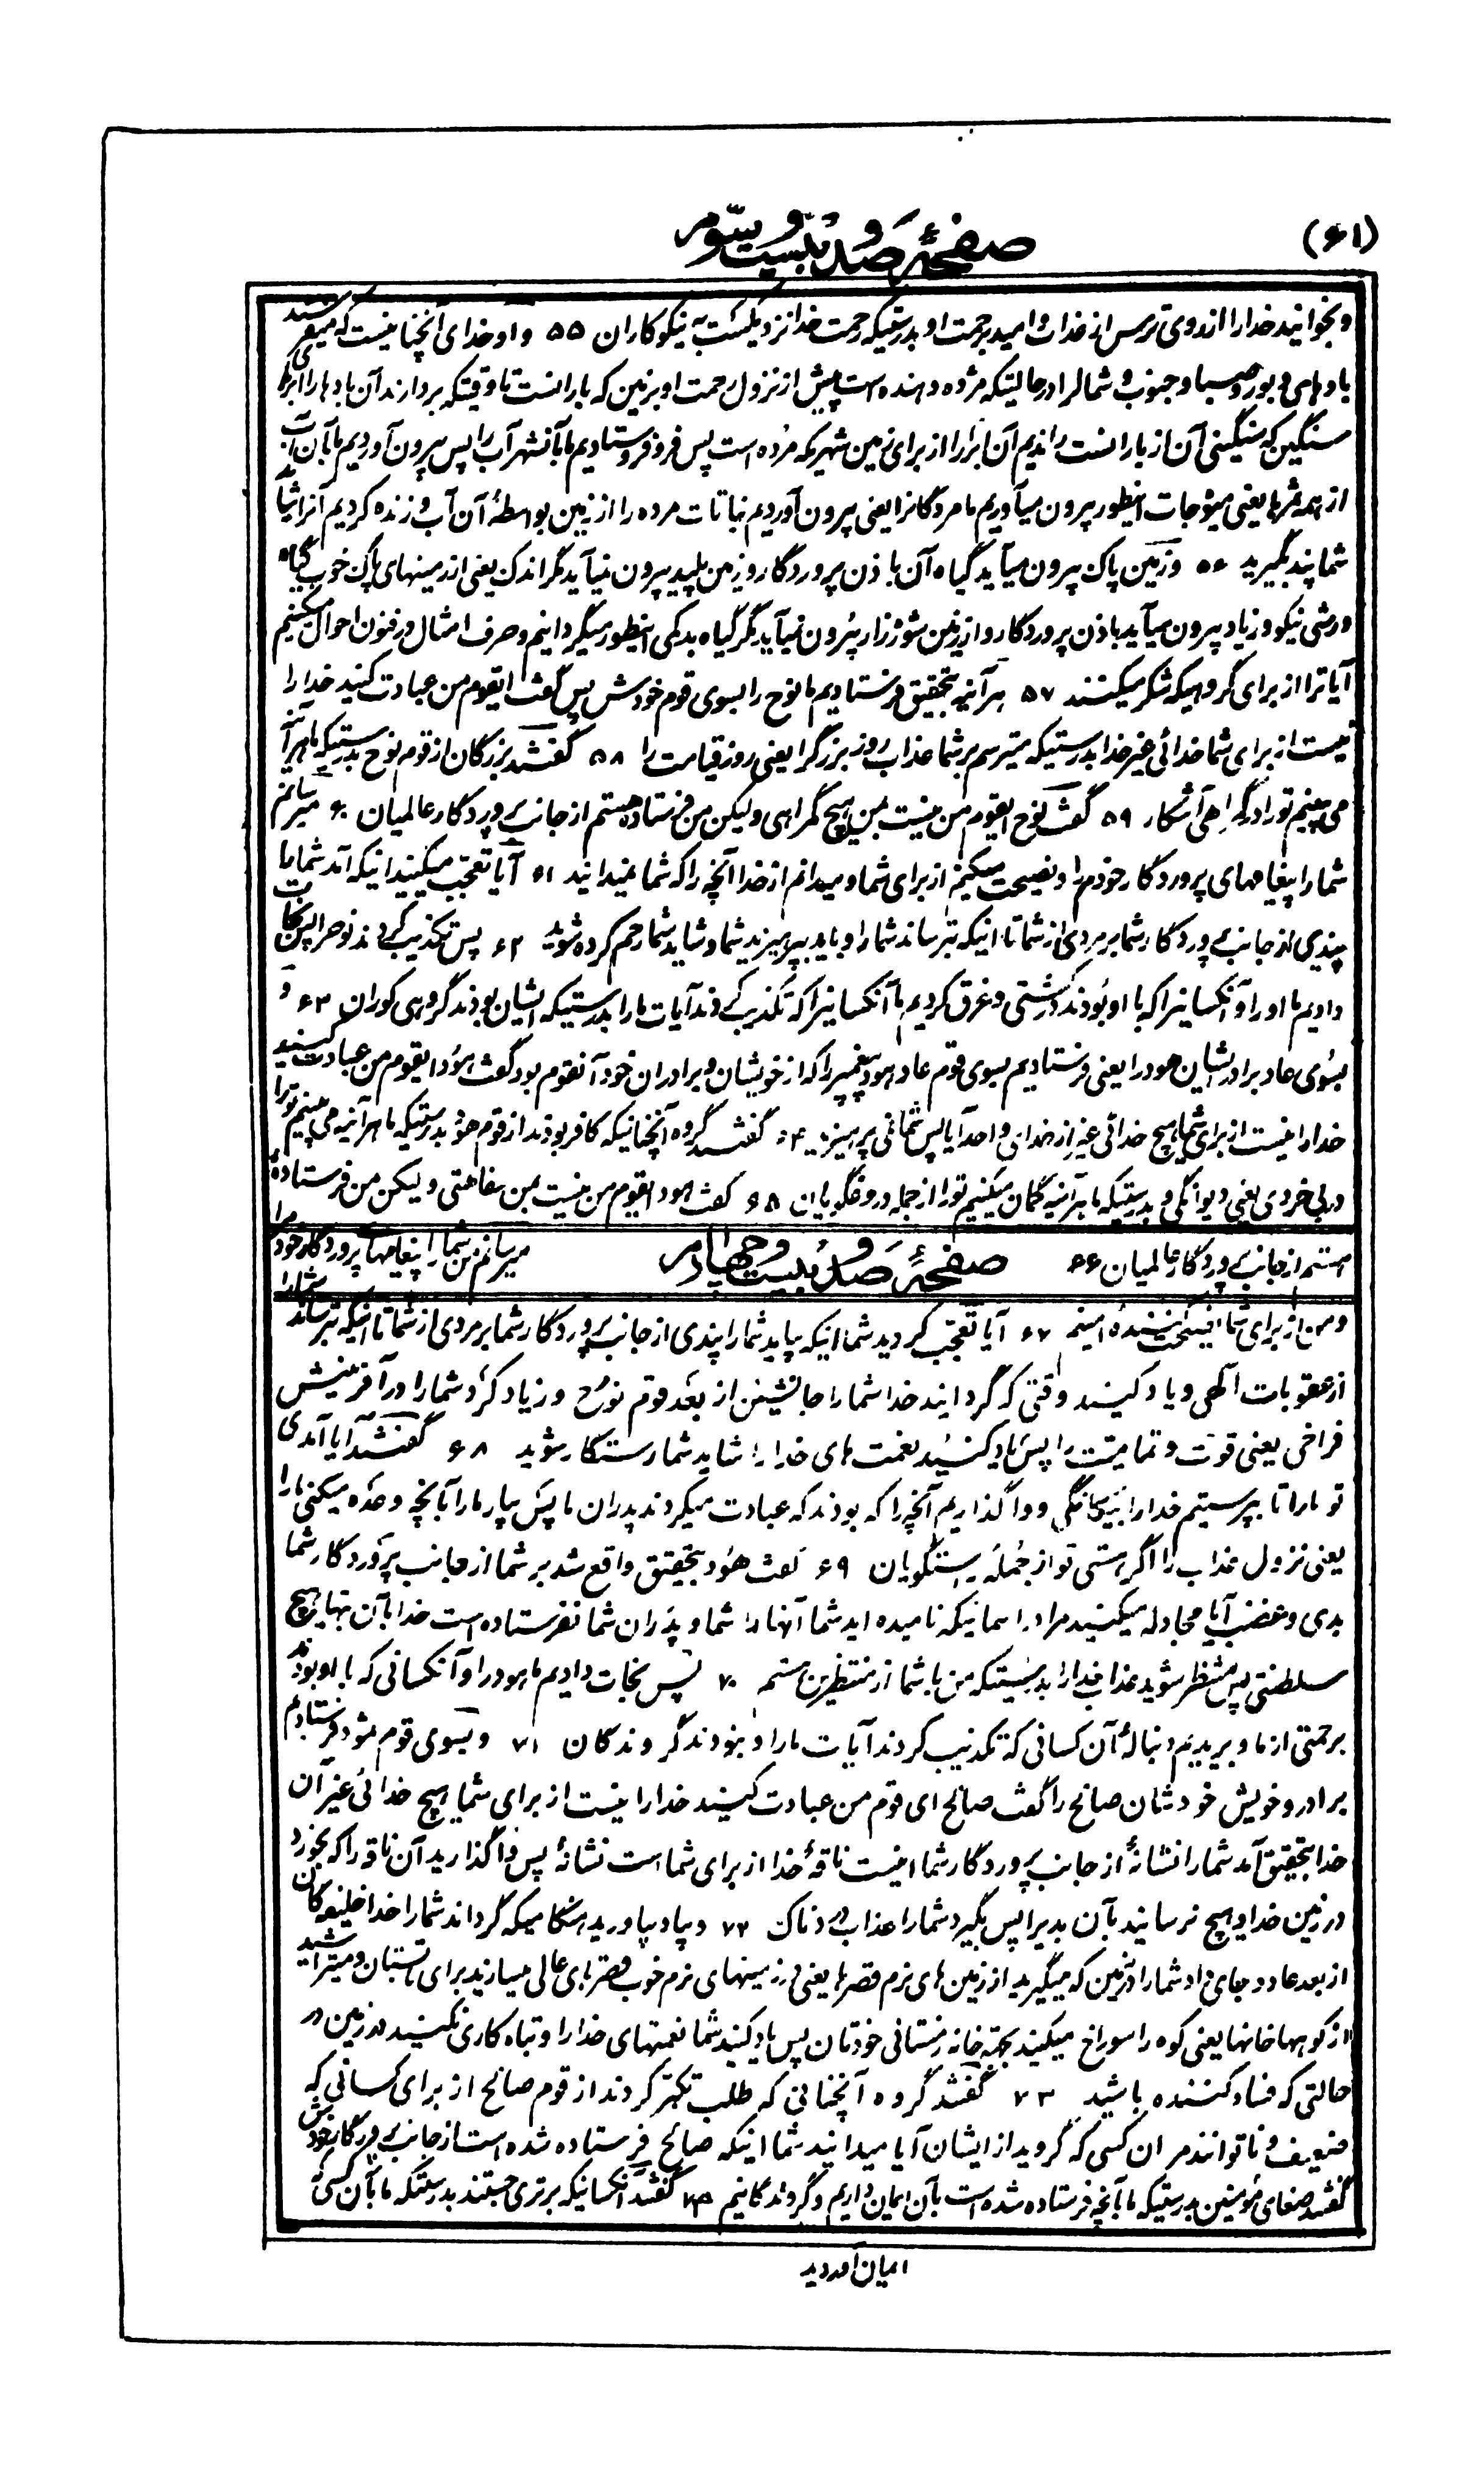 (۶۱)
صفحهٔ صد و بیست و سوم
و بخوانید خدا را از روی ترس از عذاب و امید برحمت او بدرستیکه رحمت خدا نزدیکست به نیکوکاران ۵۵ و او خدای آنچنانیست که میفرستد
بادهای دبور و صبا و جنوب و شمال را در حالتیکه مژده دهنده است پیش از نزول رحمت او بزمین که بارانست تا وقتیکه بردارند آن بادها ابرهای
سنگین که سنگینی آن از بارانست راندیم آن ابر را از برای زمین شهریکه مرده است پس فرو فرستادیم ما بآنشهر آب را پس بیرون آوردیم ما بآن آب
از همه ثمرها یعنی میوه‌جات اینطور بیرون میآوریم ما مردگانرا یعنی بیرون آوردیم نباتات مرده را از زمین بواسطهٔ آن آب و زنده کردیم آنرا شاید
شما پند بگیرید ۵۶ و زمین پاک بیرون میآید گیاه آن باذن پروردگار و زمین پلید بیرون نمیآید مگر اندک یعنی از زمینهای پاک خوب گیاه
نیکو و زیاد بیرون میآید باذن پروردگار و از زمین شوره‌زار بیرون نمیآید مگر گیاه بد کمی اینطور میگردانیم و صرف امثال در فنون احوال میکنیم
آیاترا از برای گروهیکه شکر میکنند ۵۷ هر آینه بتحقیق فرستادیم ما نوح را بسوی قوم خودش پس گفت ایقوم من عبادت کنید خدا را
نیست از برای شما خدائی غیر خدا بدرستیکه میترسم بر شما عذاب روز بزرگرا یعنی روز قیامت را ۵۸ گفتند بزرگان از قوم نوح بدرستیکه ما هر آینه
می بینیم تو را در گمراهی آشکار ۵۹ گفت نوح ایقوم من نیست بمن هیچ گمراهی ولیکن من فرستاده هستم از جانب پروردگار عالمیان ۶۰ میرسانم
شما را پیغامهای پروردگار خودم را و نصیحت میکنم از برای شما و میدانم از خدا آنچه را که شما نمیدانید ۶۱ آیا تعجب میکنید اینکه آمد شما را
پندی از جانب پروردگار شما بر مردی از شما تا اینکه بترساند شما را و باید بپرهیزید شما و شاید شما رحم کرده شوید ۶۲ پس تکذیب کردند نوحرا پس نجات
دادیم ما او را و آنکسانیرا که با او بودند در کشتی و غرق کردیم ما آنکسانیرا که تکذیب کردند آیات ما را بدرستیکه ایشان بودند گروهی کوران ۶۳ و
بسوی عاد برادر ایشان هود را یعنی فرستادیم بسوی قوم عاد هود پیغمبر را که از خویشان و برادران خود آنقوم بود گفت هود ایقوم من عبادت کنید
خدا را نیست از برای شما هیچ خدائی غیر از خدای واحد آیا پس شما نمی پرهیزید ۶۴ گفتند گروه آنچنانیکه کافر بودند از قوم هود بدرستیکه ما هر آینه می بینیم تو را
در بی خردی یعنی دیوانگی و بدرستیکه ما هر آینه گمان میکنیم تو را از جمله دروغگویان ۶۵ گفت هود ایقوم من نیست بمن سفاهتی ولیکن من فرستادهٔ
هستم از جانب پروردگار عالمیان ۶۶
صفحهٔ صد و بیست و چهارم
میرسانم من شما را پیغامهای پروردگار خود را
و من از برای شما نصیحت کنندهٔ امینم ۶۷ آیا تعجب کردید شما اینکه بیاید شما را پندی از جانب پروردگار شما بر مردی از شما تا اینکه بترساند شما را
از عقوبات الهی و یاد کنید وقتی که گردانید خدا شما را جانشینن از بعد قوم نوح و زیاد کرد شما را در آفرینش
فراخی یعنی قوت و تمامیت را پس یاد کنید نعمت های خدا را شاید شما رستگار شوید ۶۸ گفتند آیا آمدی
تو ما را تا بپرستیم خدا را به یگانگی و واگذاریم آنچه را که بودند که عبادت میکردند پدران ما پس بیار ما را بآنچه وعده میکنی ما را
یعنی نزول عذاب را اگر هستی تو از جمله راستگویان ۶۹ گفت هود بتحقیق واقع شد بر شما از جانب پروردگار شما
بدی و غضب آیا مجادله میکنید مرا در اسمائیکه نامیده اید شما آنها را شما و پدران شما نفرستاده است خدا بآن بتها هیچ
سلطنتی پس منتظر شوید عذاب خدا را بدرستیکه من با شما از منتظرین هستم ۷۰ پس نجات دادیم ما هود را و آنکسانی که با او بودند
برحمتی از ما و بریدیم دنبالهٔ آن کسانی که تکذیب کردند آیات ما را و نبودند گروندگان ۷۱ و بسوی قوم ثمود فرستادیم
برادر و خویش خودشان صالح را گفت صالح ای قوم من عبادت کنید خدا را نیست از برای شما هیچ خدائی غیر آن
خدا بتحقیق آمد شما را نشانهٔ از جانب پروردگار شما اینست ناقهٔ خدا از برای شما است نشانهٔ پس واگذارید آن ناقه را که بخورد
در زمین خدا و هیچ نرسانید بآن بدیرا پس بگیرد شما را عذاب دردناک ۷۲ و بیاد بیاورید هنگامیکه گرداند شما را خدا خلیفه‌گان
از بعد عاد و جای داد شما را در زمین که میگیرید از زمین های نرم قصرها یعنی در زمینهای نرم خوب قصرهای عالی میسازید برای تابستان و میتراشید
از کوهها خانها یعنی کوه را سوراخ میکنید بجهة خانه زمستانی خودتان پس یاد کنید شما نعمتهای خدا را و تباه کاری نکنید در زمین در
حالتی که فساد کننده باشید ۷۳ گفتند گروه آنچنانی که طلب تکبر کردند از قوم صالح از برای کسانی که
ضعیف و ناتوانند مر ان کسی که گروید از ایشان آیا میدانید شما اینکه صالح فرستاده شده است از جانب پروردگار خودش
گفتند ضعفای مؤمنین بدرستیکه ما بآنچه فرستاده شده است بآن ایمان داریم و گروندگانیم ۷۴ گفتند آنکسانیکه برتری جستند بدرستیکه ما بآن کسی که
ایمان آوردید